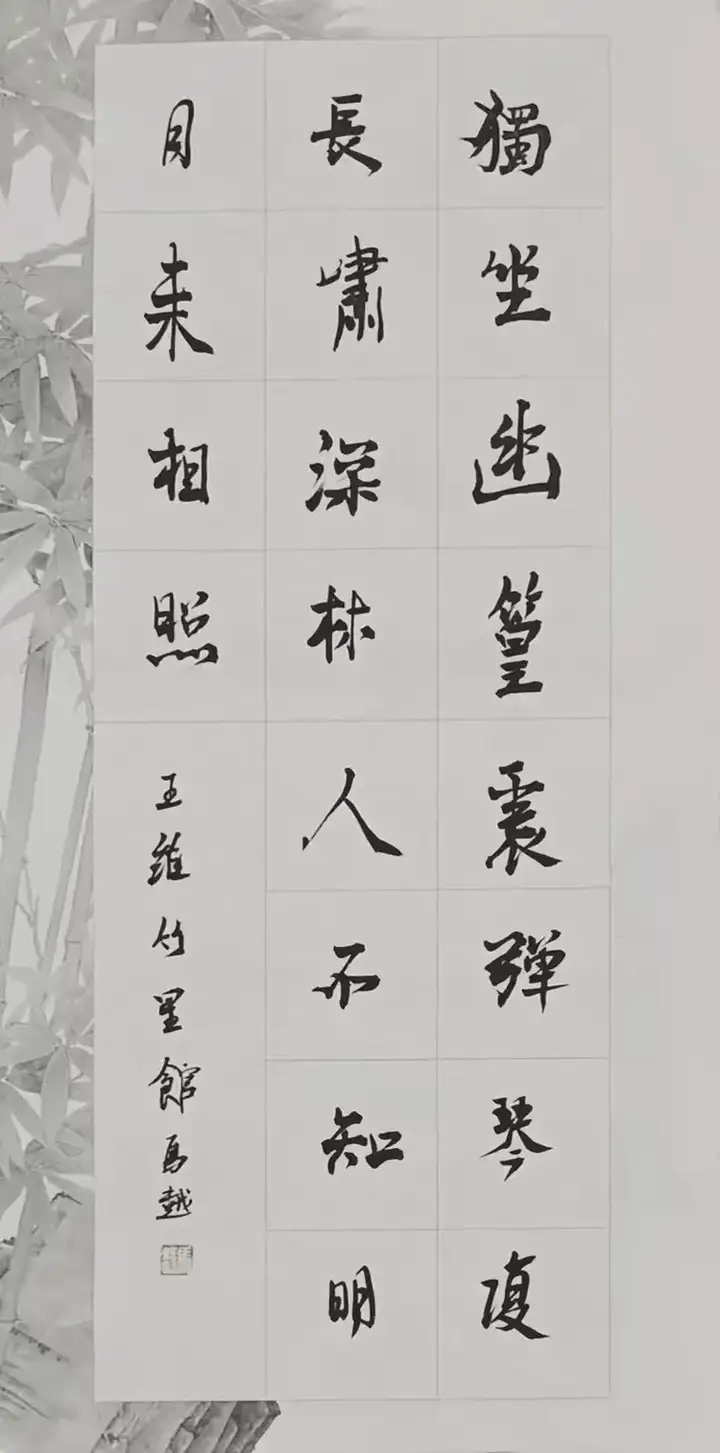 獨坐幽篁裏彈琴復
長嘯深林人不知明
月来相照
王維竹里館馬越